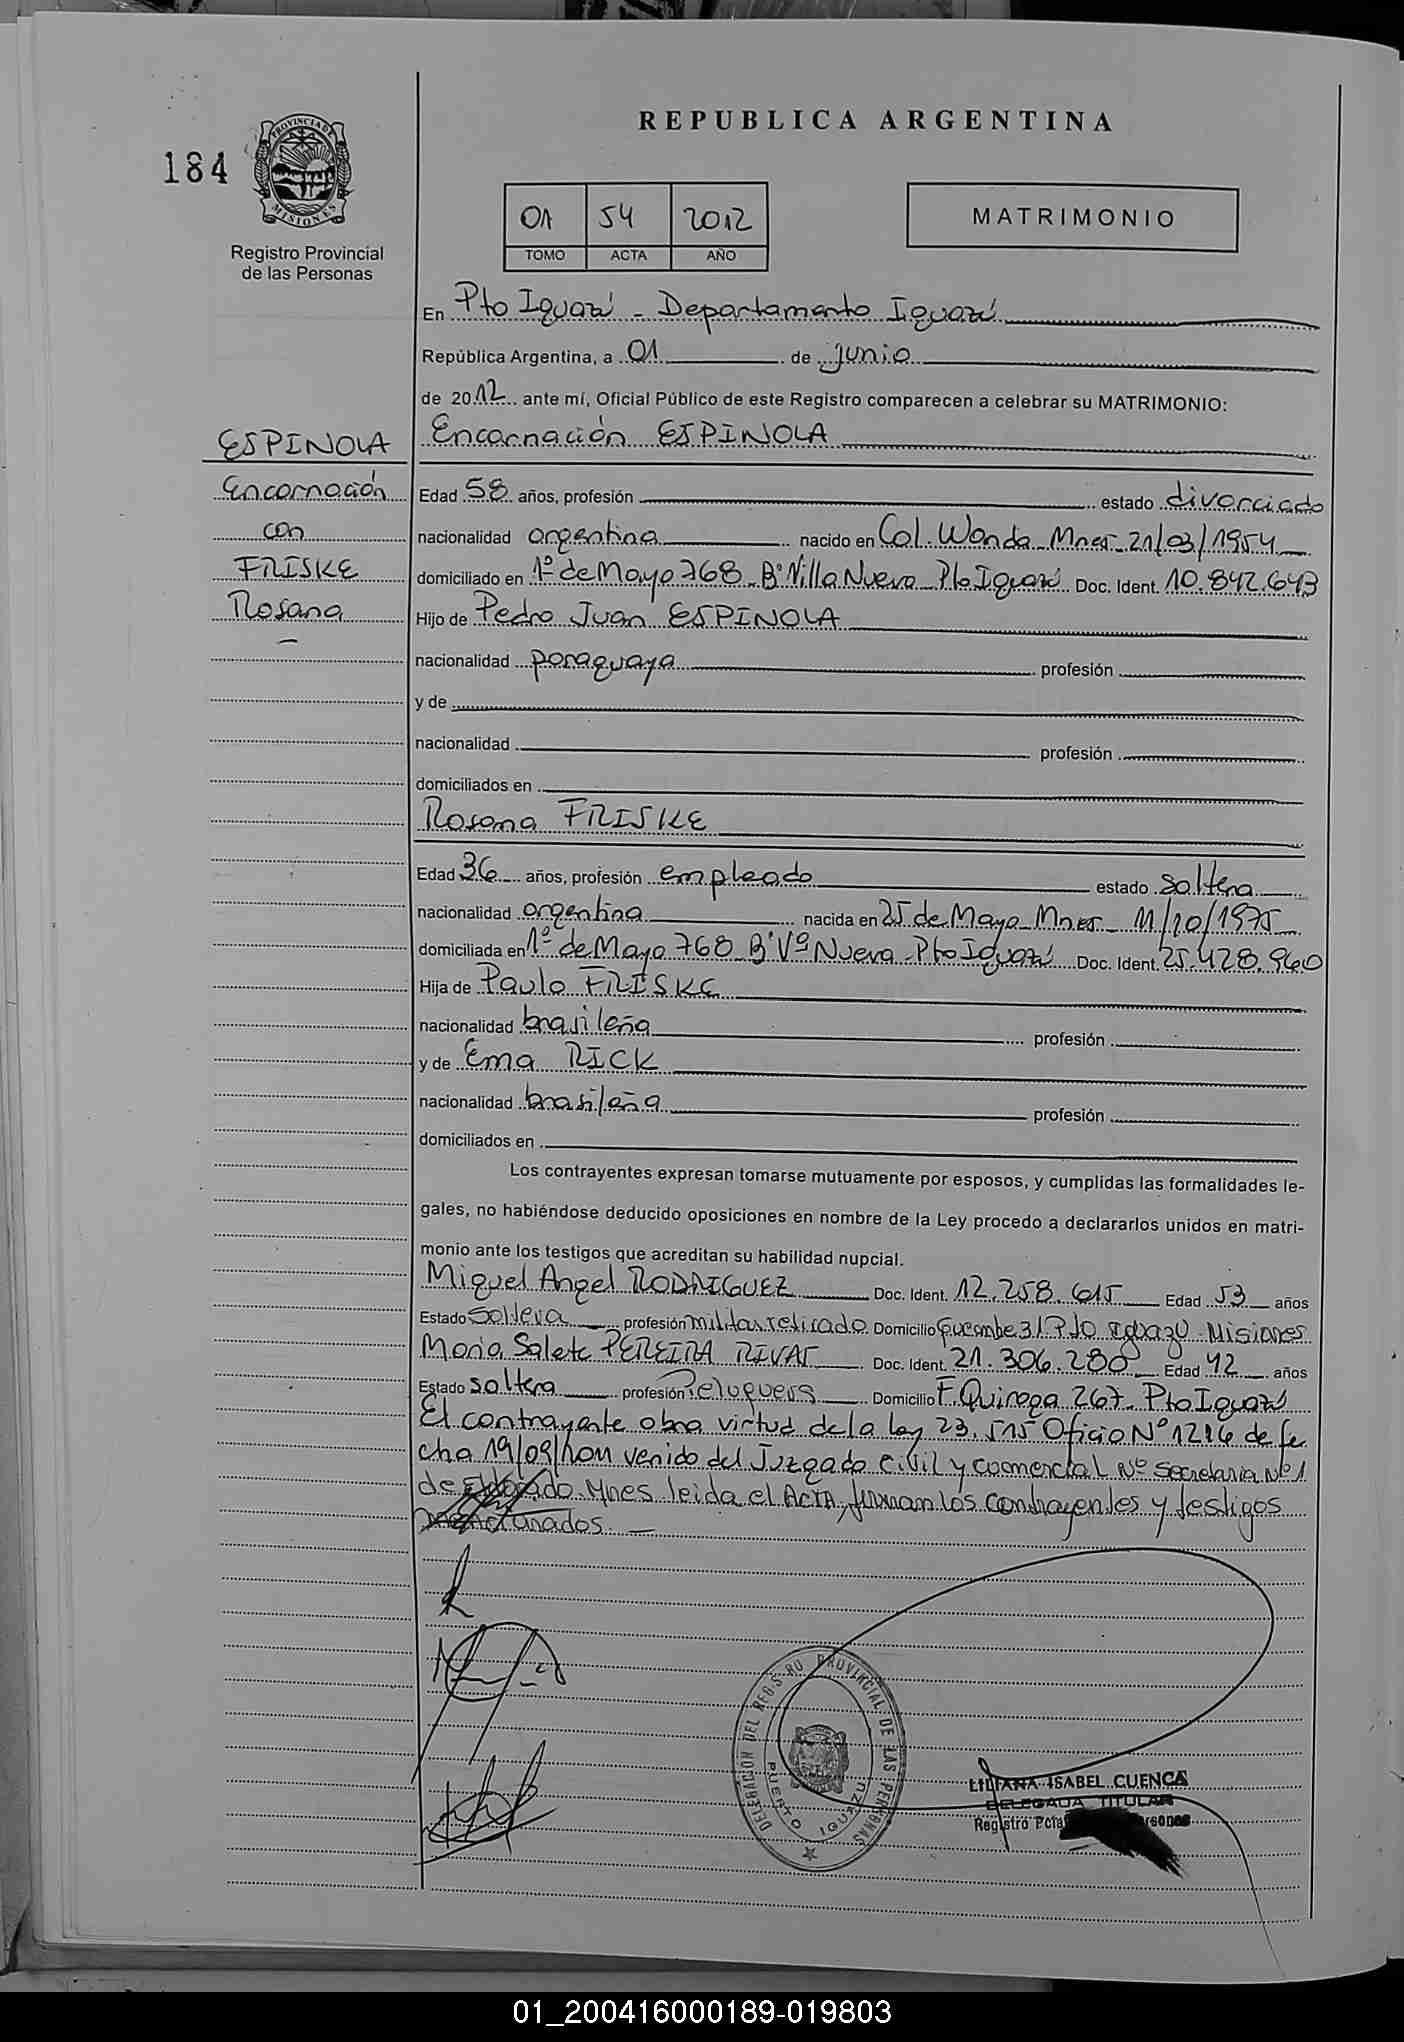 REPUBLICA ARGENTINA
184
PROVINCIA DE MISIONES
Registro Provincial
de las Personas
01 54 2012
TOMO ACTA AÑO
MATRIMONIO
En Pto Iguazú - Departamento Iguazú
República Argentina, a 01 de junio
de 2012 ante mí, Oficial Público de este Registro comparecen a celebrar su MATRIMONIO:
ESPINOLA
Encarnación
con
FRISKE
Rosana
Encarnación ESPINOLA
Edad 58 años, profesión estado divorciado
nacionalidad argentina nacido en Col. Wanda Mnes 21/03/1954
domiciliado en 1º de Mayo 768 Bº Villa Nueva Pto Iguazú Doc. Ident. 10.842.643
Hijo de Pedro Juan ESPINOLA
nacionalidad paraguaya profesión
y de
nacionalidad profesión
domiciliados en
Rosana FRISKE
Edad 36 años, profesión empleada estado soltera
nacionalidad argentina nacida en 25 de Mayo Mnes 11/10/1975
domiciliada en 1º de Mayo 768 Bº Vª Nueva - Pto Iguazú Doc. Ident. 25.428.960
Hija de Paulo FRISKE
nacionalidad brasileña profesión
y de Ema RICK
nacionalidad brasileña profesión
domiciliados en
Los contrayentes expresan tomarse mutuamente por esposos, y cumplidas las formalidades le-
gales, no habiéndose deducido oposiciones en nombre de la Ley procedo a declararlos unidos en matri-
monio ante los testigos que acreditan su habilidad nupcial.
Miguel Angel RODRIGUEZ Doc. Ident. 12.258.615 Edad 53 años
Estado profesión militar retirado Domicilio 31 PTO Iguazú Misiones
Maria Salete PEREIRA RIVAS Doc. Ident. 21.306.280 Edad 42 años
Estado soltera profesión Peluquera Domicilio F. Quiroga 267 Pto Iguazú
El contrayente obra virtud de la ley 23.515 Oficio Nº 1216 de fe
cha 19/09/2011 venido del Juzgado Civil y Comercial Nº Secretaria Nº 1
de Eldorado. Mnes leida el Acta, firman los contrayentes y testigos
mencionados.
DELEGACION DEL REGISTRO PROVINCIAL DE LAS PERSONAS
PUERTO IGUAZU
LILIANA ISABEL CUENCA
DELEGADA TITULAR
Registro Pcial. Personas
01_200416000189-019803